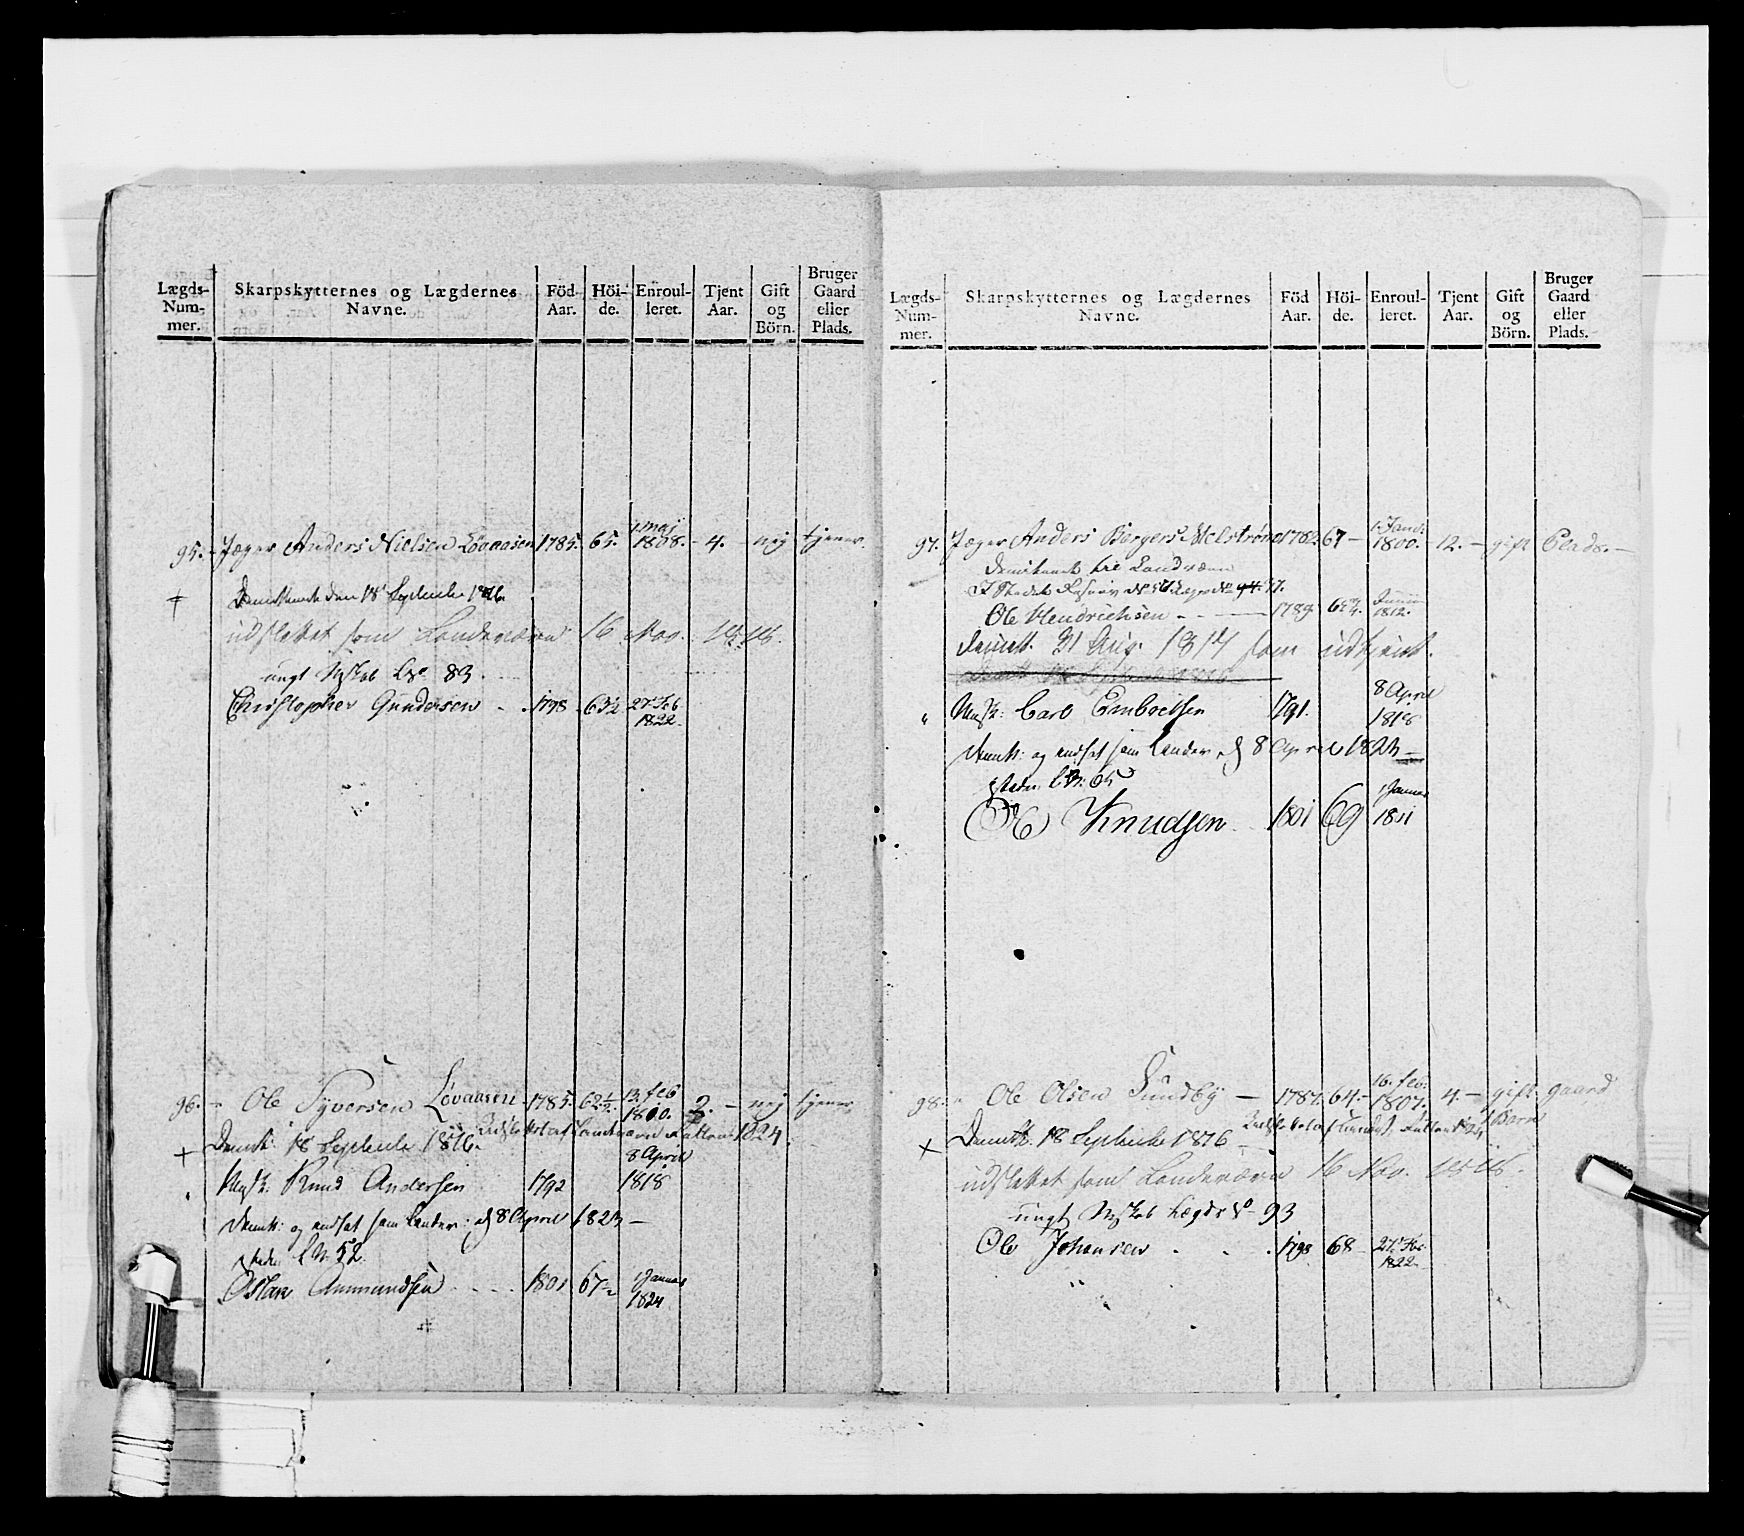 Lægds-Num-mer. Skarpskytternes og Lægdernes Navne. Föd Aar. Höi-de. Enroul-leret. Tjent Aar. Gift og Börn. Bruger Gaard eller Plads.
95. Jæger Anders Nielsen Lövaasen 1785. 65. 1 Maj 1808. 4. nej tjener.
Demitteret den 18 Septembr 1816.
udslettet som Landeværn 16 Nov. 1818.
ungt Mskab LNo 83.
Christopher Gundersen 1798 63½ 27 Feb 1822
96. Ole Syversen Lövaasen 1785. 62½. 13. feb 1800. 2. nej tjener
Demitt. 18 Septembr 1816. 1824
8 April
Msk. Knud Andersen 1792 1818
Demitt. og ansat som Landev. d 8 April 1823
LN. 52
Aslak Ammundsen 1801 67½ 1 Januar 1824
Lægds-Num-mer. Skarpskytternes og Lægdernes Navne. Föd Aar. Höi-de. Enroul-leret. Tjent Aar. Gift og Börn. Bruger Gaard eller Plads.
97. Jæger Anders Bergers 1782. 67 1. Janr. 1800. 12. gift Plads.
Demitteret til Landværn
Ole Hendrichsen 1789 1812.
Demitt. 31 Aug. 1817 som udtjent.
8 April
Msk: Carl Emboelsen 1791. 1818
Demitt: og ansat som Landev. d 8 April 1823
isteden LN: 65
Ole Knudsen 1801 69 1 Januar
98. Ole Olsen Sundby 1787. 64. 16. feb: 1807. 4. gift gaard
1 Barn
Demitt. 18 Septembr 1816
udslettet som Landeværn 16 Nov. 1818.
ungt Mskab Lægds No 93
Ole Johansen 1798 68 27 Feb. 1822